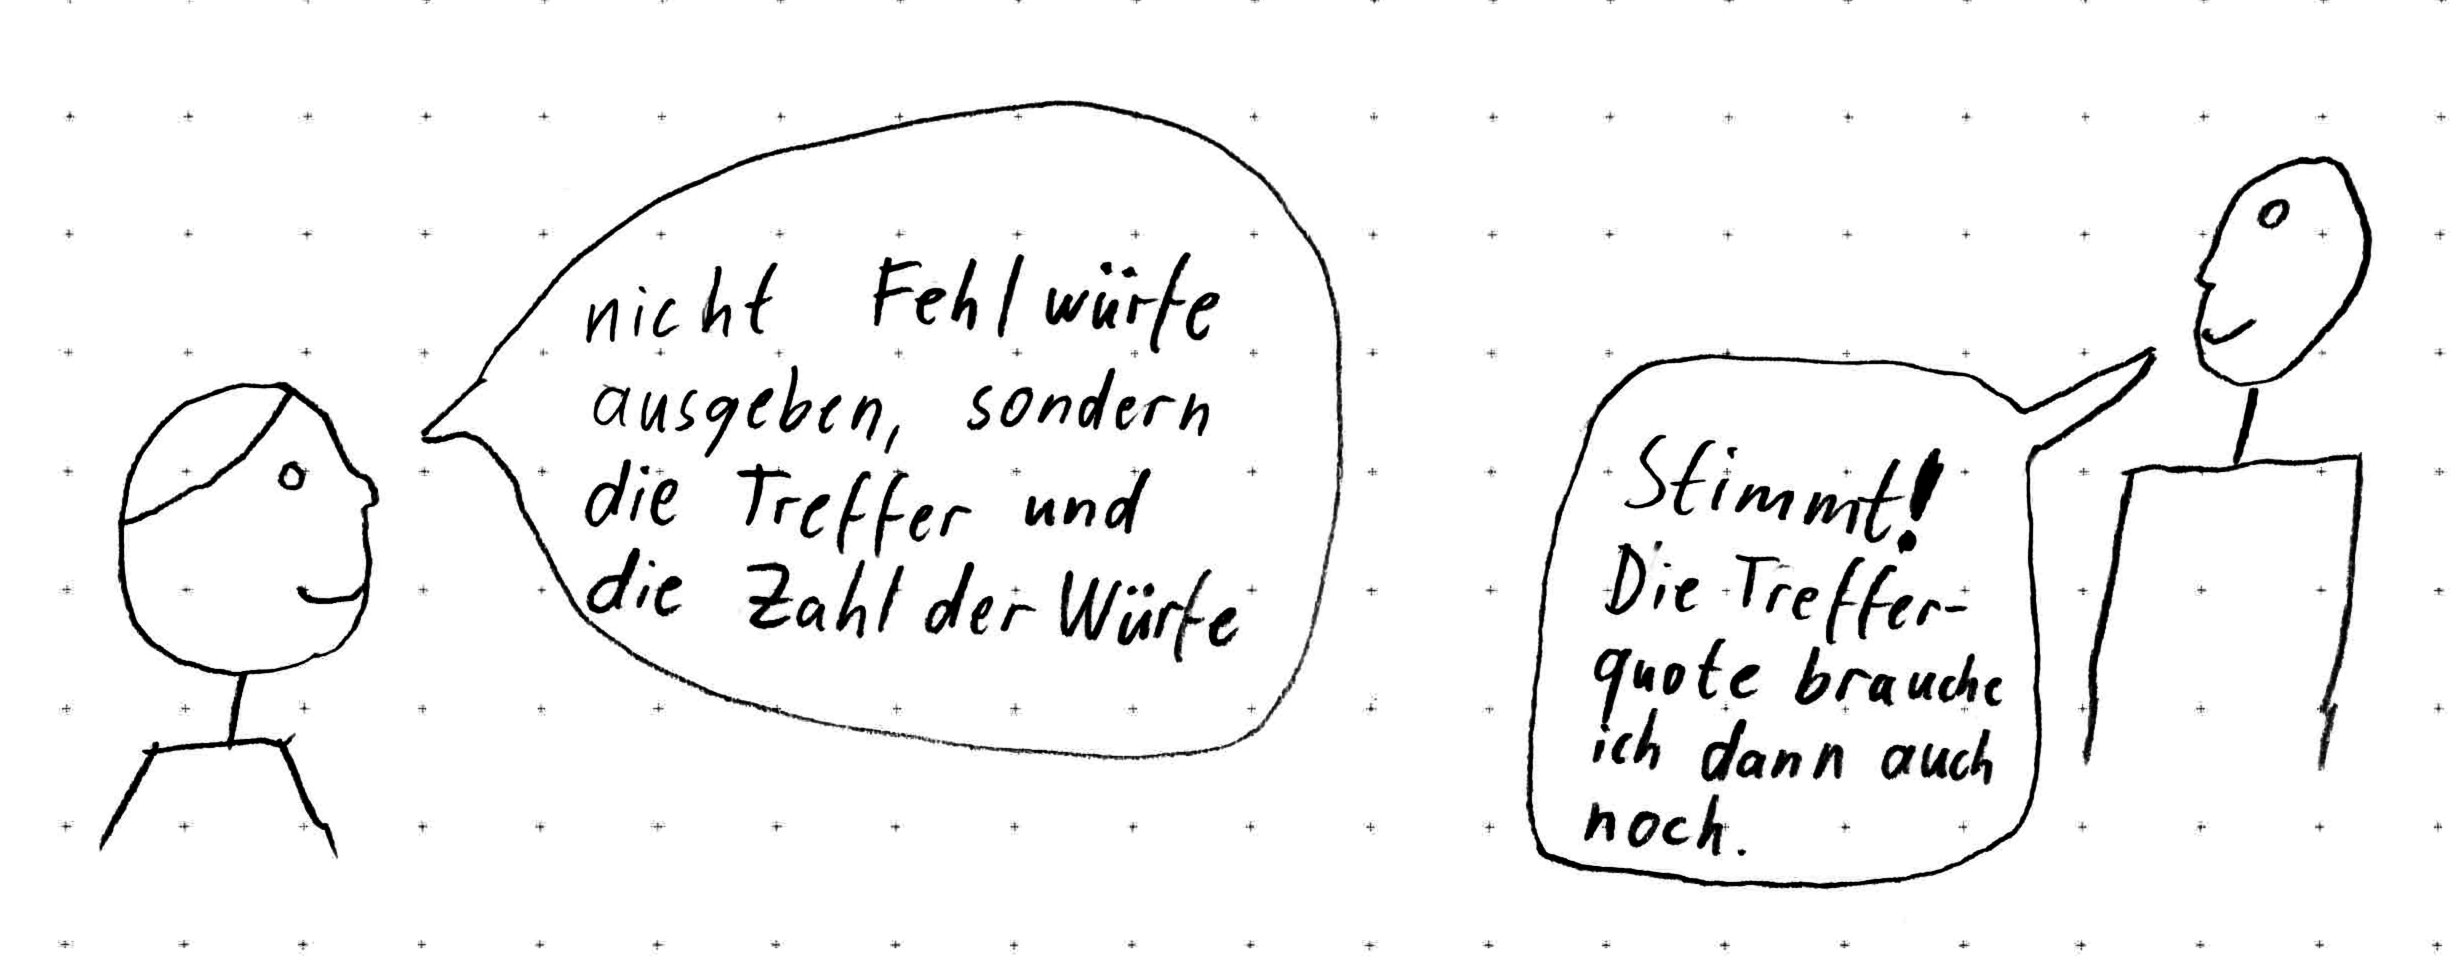 nicht Fehlwürfe
ausgeben, sondern
die Treffer und
die Zahl der Würfe
Stimmt!
Die Treffer-
quote brauche
ich dann auch
noch.